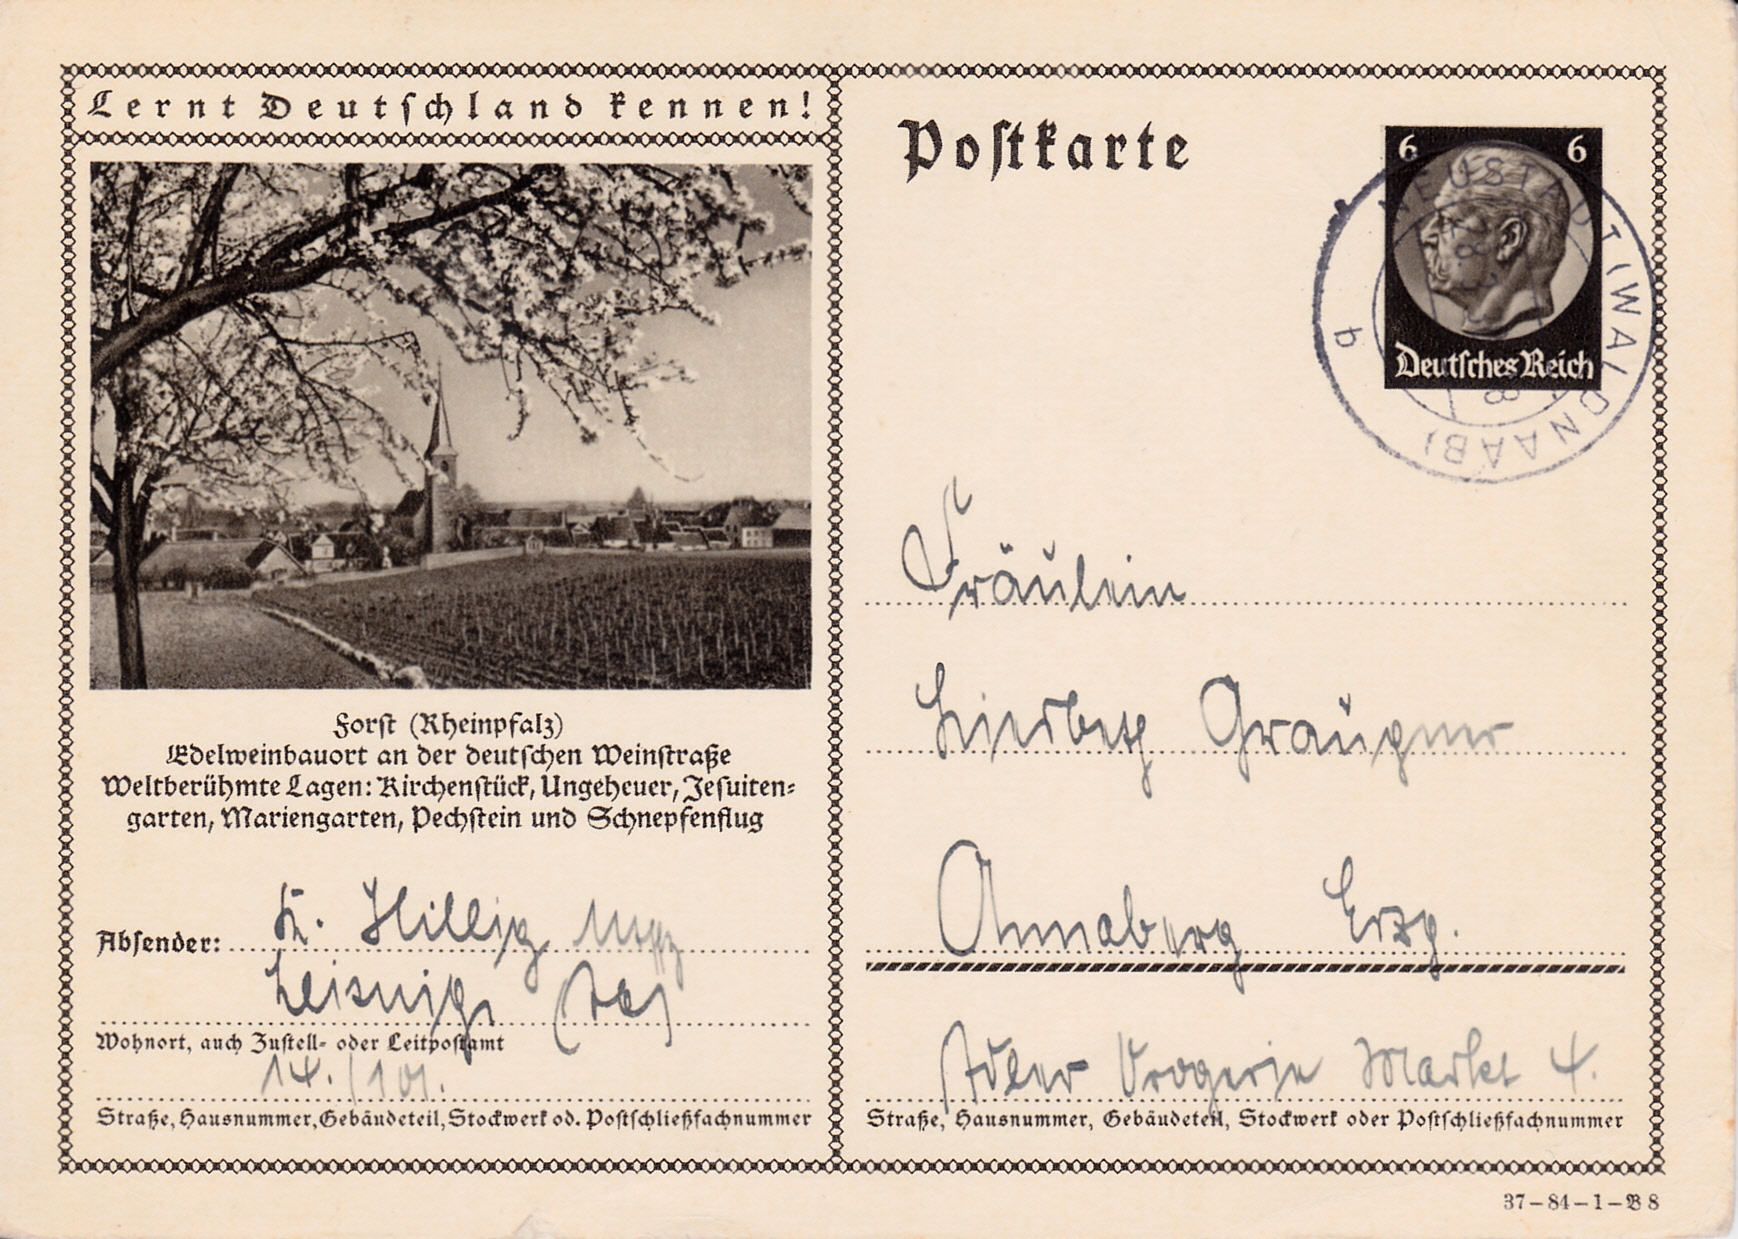 Lernt Deutschland kennen!
Forst (Rheinpfalz)
Edelweinbauort an der deutschen Weinstraße
Weltberühmte Lagen: Kirchenstück, Ungeheuer, Jesuiten-
garten, Mariengarten, Pechstein und Schnepfenflug
Absender: K. Hillig
Leisnig
Wohnort, auch Zustell- oder Leitpostamt
14./101.
Straße, Hausnummer, Gebäudeteil, Stockwerk od. Postschließfachnummer
Postkarte
6 6
Deutsches Reich
NEUSTADT (WALDNAAB)
b
Fräulein
Annaberg Erzg.
Adler Drogerie Markt 4.
Straße, Hausnummer, Gebäudeteil, Stockwerk oder Postschließfachnummer
37-84-1-B8